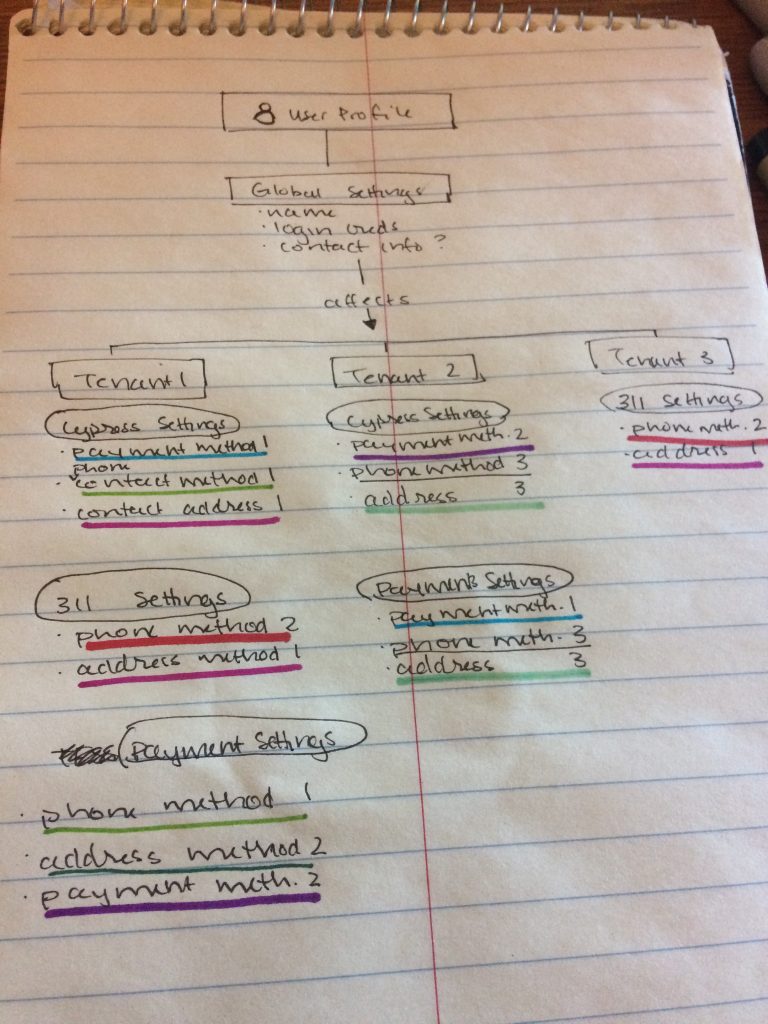 User Profile
Global Settings
· name
· login creds
· contact info?
affects
Tenant 1
Cypress Settings
· payment method 1
phone
· contact method 1
· contact address 1
311 Settings
· phone method 2
· address method 1
Payment Settings
· phone method 1
· address method 2
· payment meth. 2
Tenant 2
Cypress Settings
· payment meth. 2
· phone method 3
· address 3
Payments Settings
· payment meth. 1
· phone meth. 3
· address 3
Tenant 3
311 Settings
· phone meth. 2
· address 1